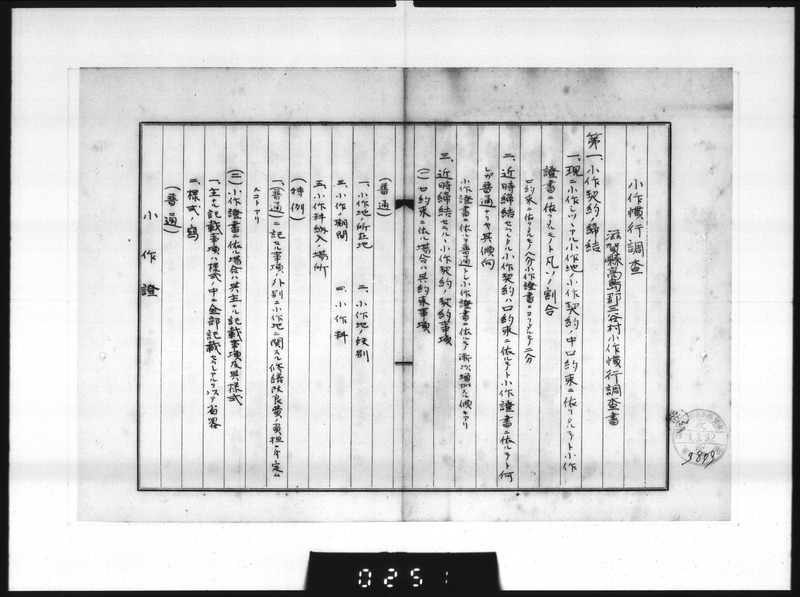 小作慣行調査
滋賀縣高島郡三谷村小作慣行調査書
第一、小作契約ノ締結
一、現ニ小作シツヽアル小作地小作契約ノ中口約束ニ依リタルモノト小作
證書ニ依リタルモノト凡ソノ割合
口約束ニ依リタルモノ八分小作證書ニヨリタルモノ二分
二、近時締結セラルヽ小作契約ハ口約束ニ依ルモノト小作證書ニ依ルモノト何
レガ普通ナリヤ其傾向
小作證書ニ依ルヲ普通トシ小作證書ニ依ルモノ漸次増加スル傾キアリ
三、近時締結セラルヽ小作契約ノ契約事項
(一)口約束ニ依ル場合ハ其約束事項
(普通)
一、小作地ノ所在地 二、小作地ノ段別
三、小作ノ期間 四、小作料
五、小作料納入ノ場所
(特例)
一、(普通)ニ記セル事項ノ外別ニ小作地ニ関スル修繕改良費ノ負担ヲ定ム
ルコトアリ
(二)小作證書ニ依ル場合ハ其主ナル記載事項及其様式
一、主ナル記載事項ハ様式ノ中ニ全部記載セラレアルヲ以テ省畧
二、様式ノ寫
(普通)
小作證
9809
0251